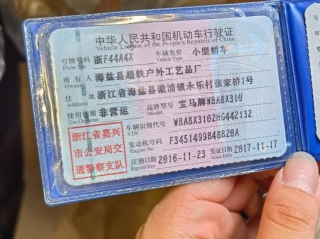 中华人民共和国机动车行驶证
Vehicle License of the People's Republic of China
号牌号码 浙F44A4X 车辆类型 小型轿车
所有人 海盐县超轶户外工艺品厂
住址 浙江省海盐县澉浦镇永乐村张家桥1号
使用性质 非营运 品牌型号 宝马牌WBA8X310
Use Character
车辆识别代号 WBA8X3102HG442132
VIN
发动机号码 F3451499B48B20A
Engine No.
注册日期 2016-11-23 发证日期 2017-11-17
Register Date Issue Date
浙江省嘉兴
市公安局交
通警察支队